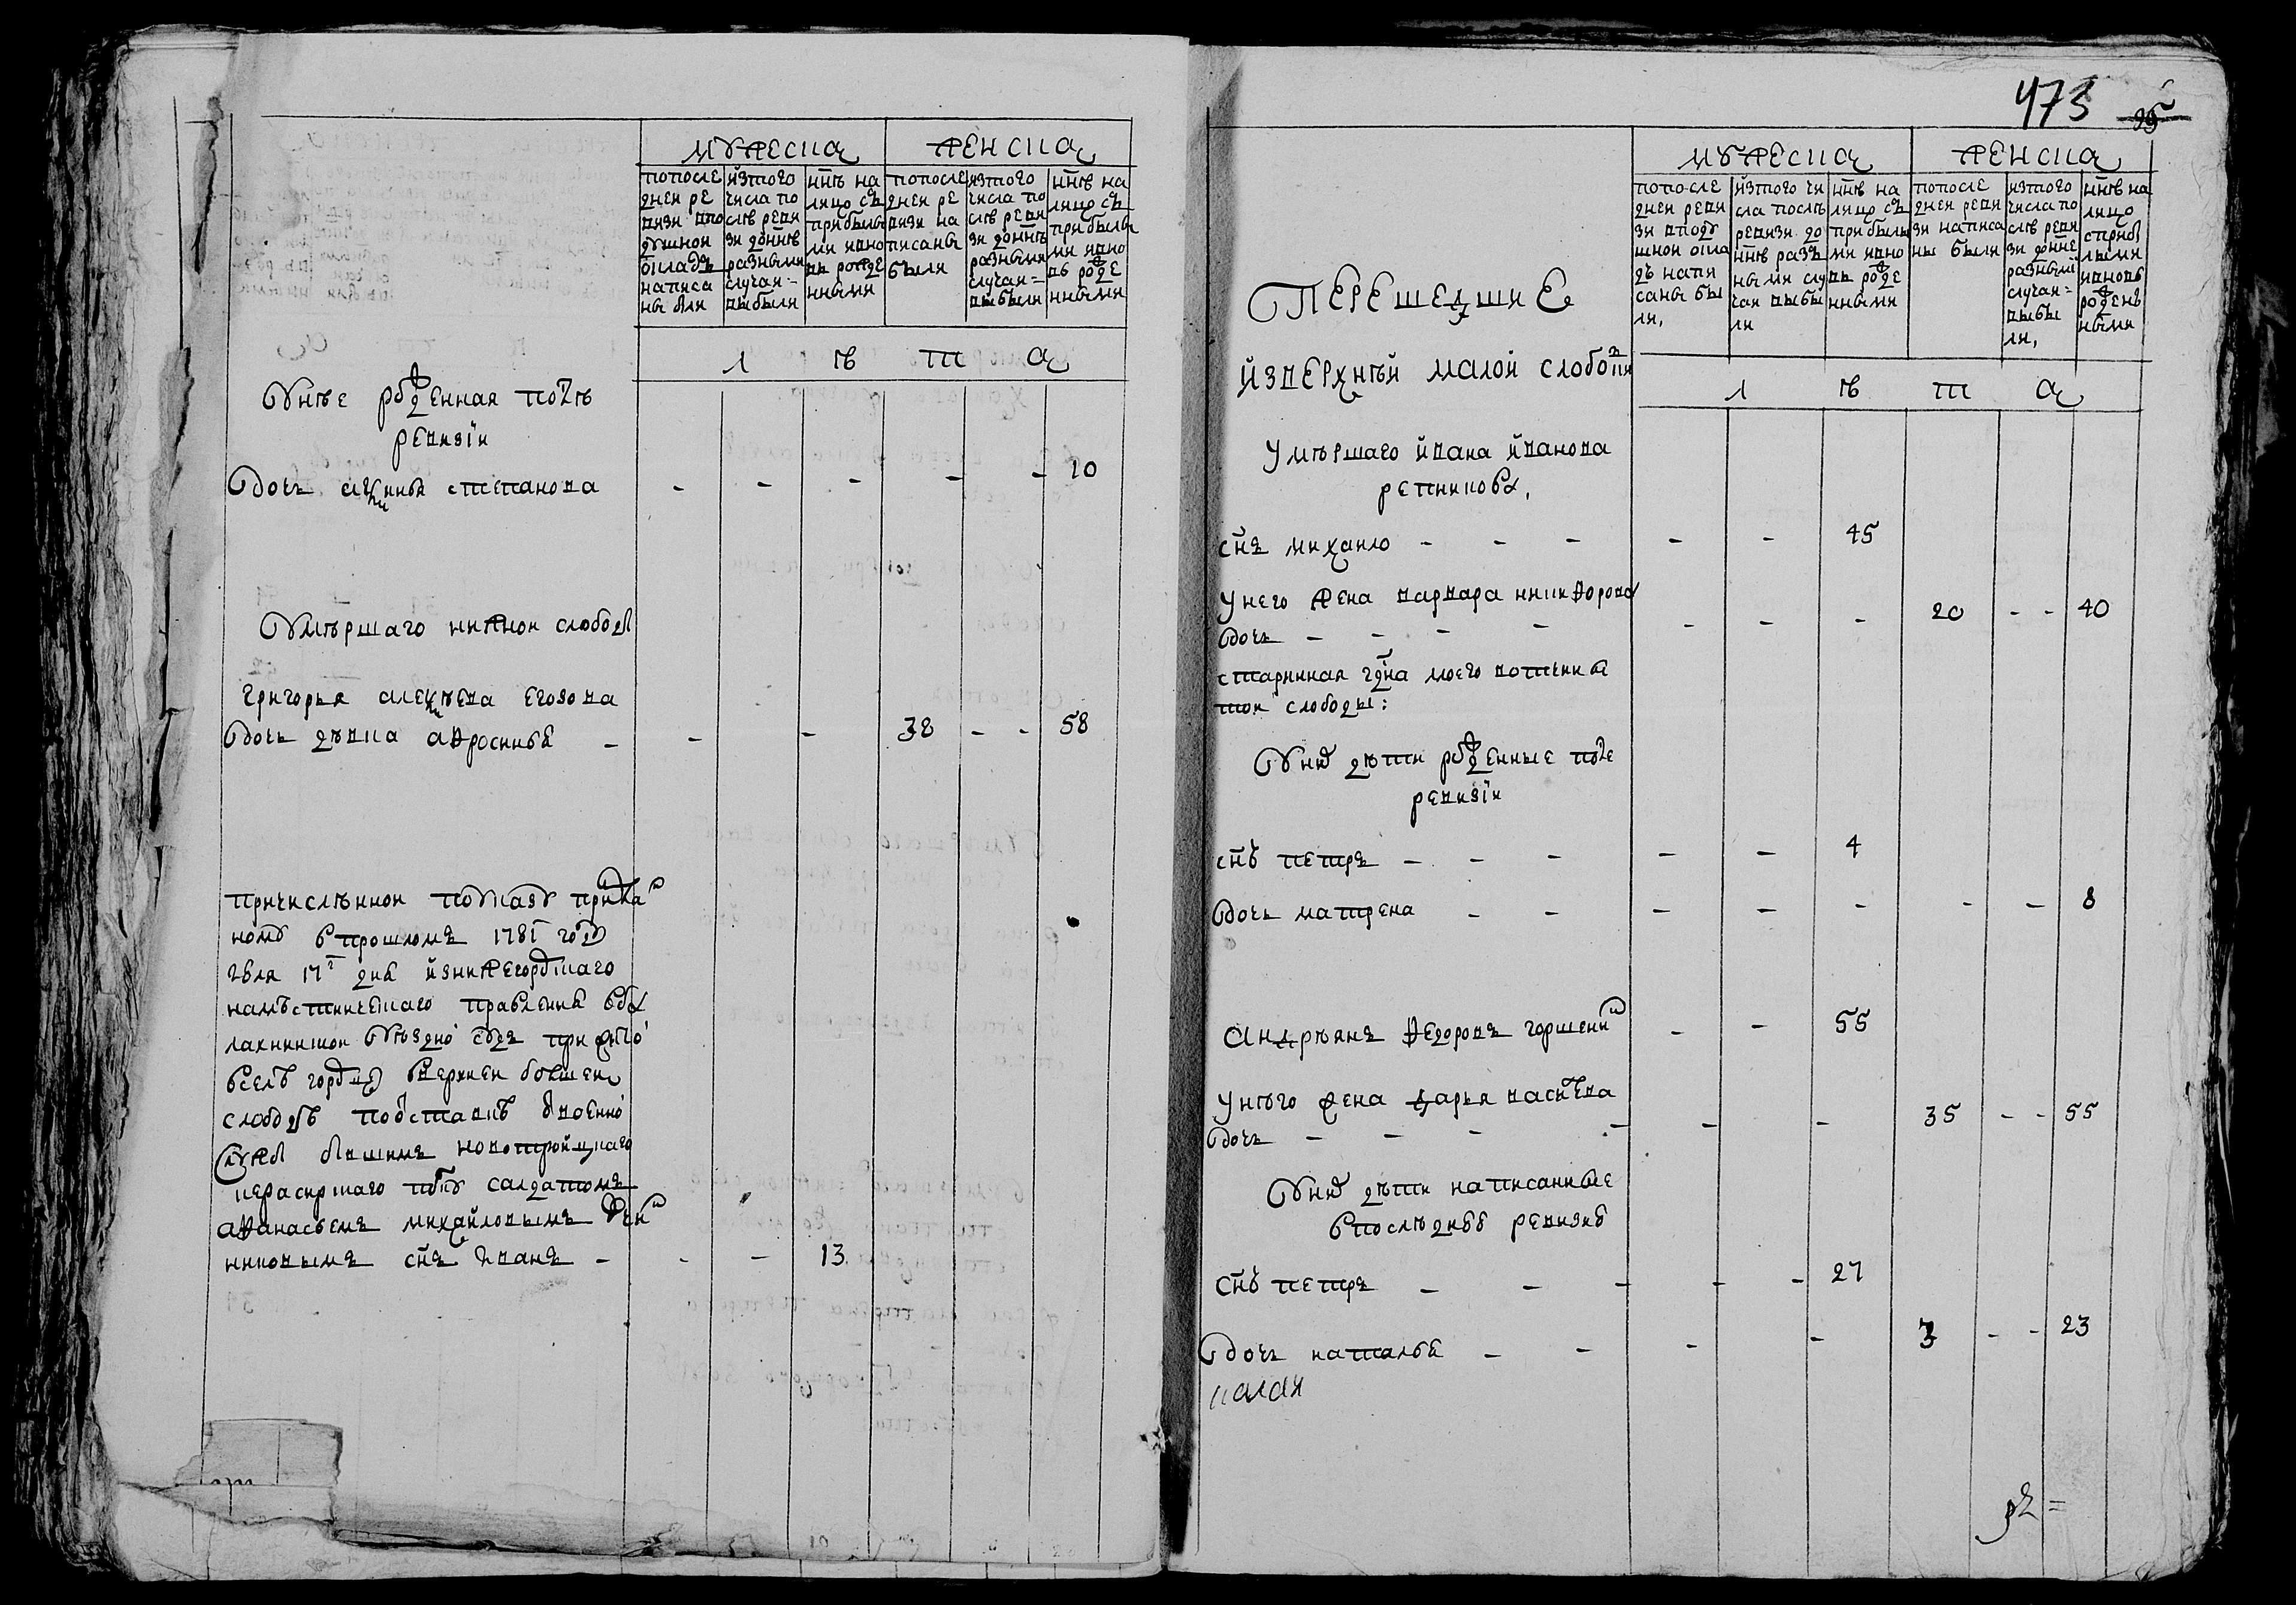 мужеска женска
по после
дней ре
визи впо
душной
окладъ
написа
ны были
изтого
числа по
слѣ реви
зи доннѣ
разными
случаи=
выбыли
ннѣ на
лицо съ
прибылы
ми ивно
въ рожде
нными
по после
дней ре
визи на
писаны
были
изтого
числа по
слѣ реви
зи доннѣ
разными
случаи=
выбыли
ннѣ на
лицо съ
прибылы
ми ивно
въ рожде
нными
л ѣ т а
Унѣе рожденная послѣ
ревизіи
дочь степанова - - - - - 10
Умѣршаго нижной слободы
григорья алексѣева егозова
дочь дѣвка афросинья - - - 38 - - 58
причислѣнной поуказу приказ
ному впрошломъ 1781 году
17г дня изнижегородскаго
намѣстническаго правления вба
лахнинской уѣздной судъ
вселѣ городцѣ верхней болшей
слободѣ
службы бывшимъ новотроицкаго
керасирскаго полку салдатомъ
афанасьемъ михайловымъ
никовымъ снъ иванъ - - - 13
473
95
мужеска женска
попосле
дней реви
зи вподу
шной окла
дъ напи
саны бы
ли,
изтого чи
сла послѣ
ревизи до
ннѣ разъ
ными слу
чаи выбы
ли
ннѣ на
лицо съ
прибылы
ми ивно
въ рожде
нными
попосле
дней реви
зи написа
ны были
изтого
числа по
слѣ реви
зи донне
разными
случаи=
выбы
ли,
ннѣ на
лицо
сприбы
лыми
ивновь
рожденъ
ными
л ѣ т а
Перешедшие
изверхнѣй малой слободки
Умѣршаго ивана иванова
репникова,
снъ михаило - - - - - 45
унего жена варвара никифорова
дочь - - - - - - - 20 - - 40
старинная гдна моего вотчины
той слободы:
Уних дѣти рожденные после
ревизіи
снъ петръ - - - - - 4
дочь матрена - - - - - - - 8
Андрѣянъ федоровъ горшенин - - 55
унѣго жена дарья васильева
дочь - - - - - - 35 - - 55
Уних дѣти написанные
впослѣднею ревизию
снъ петръ - - - - - 27
дочь наталья - - - - 3 - - 23